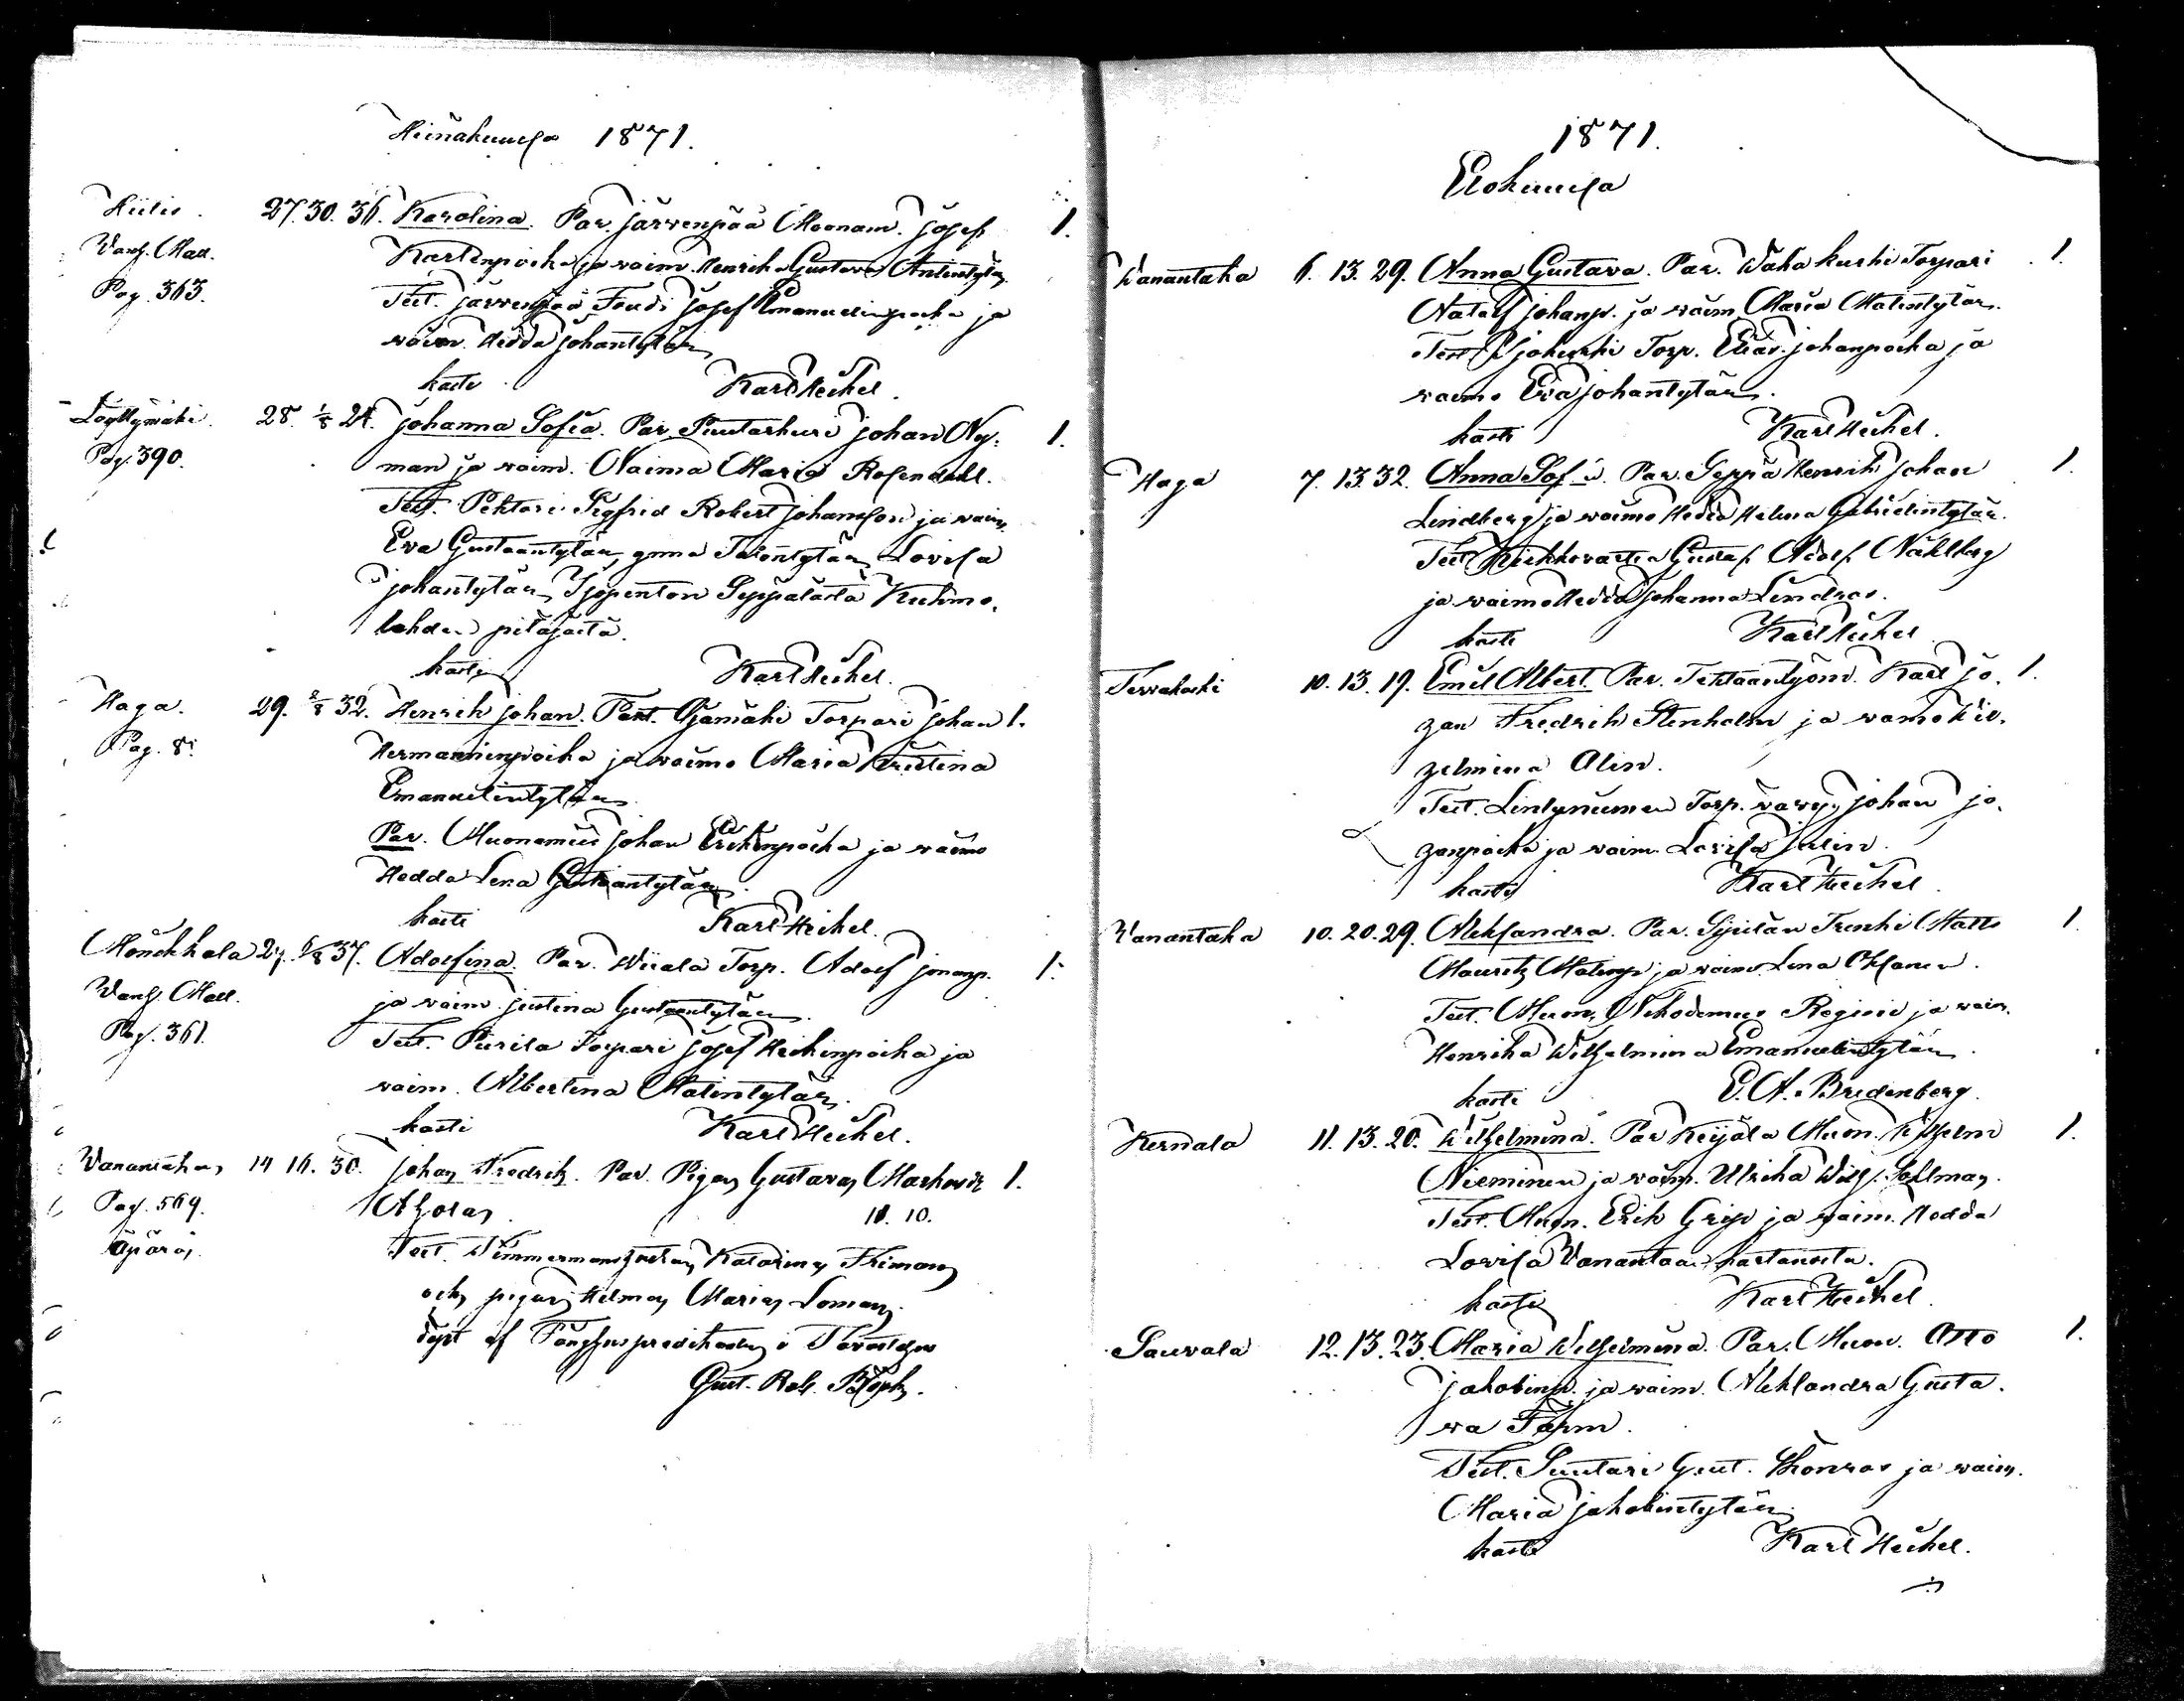 Heinäkuusa 1871.
Hiitis. 27. 30. 36. Karolina. Par. Järvenpää Muonam. Josef 1.
Wanh. Maa. Karlenpoika ja waim. Henrika Gustava Antintytär
Pag. 363. Test. Järvenpää Josef Emanuelinpoika ja
waim. Hedda Johantytär
kasti Karl Heikel.
Löyttymäki 28. 1/8 24. Johanna Sofia. Par. Puutarhuri Johan Ny- 1.
Pag. 390. man ja waim. Naima Maria Rosendahl.
Test. Pehtori Sigfrid Robert Johansson ja waim.
Eva Gustaantytär, Lovisa
Johantytär, Seppälästä Kuhmo-
lahden pitäjästä.
kasti Karl Heikel.
Haga. 29. 2/8 32. Henrik Johan. Ojamäki Torpari Johan 1.
Pag. 8. Hermanninpoika ja waimo Maria Kristina
Emanuelintytär
Par. Muonamies Johan Erikinpoika ja waimo
Hedda Lena Gustaantytär.
kasti Karl Heikel.
29. 6/8 37. Adolfina. Par. Wiiala Torp. Adolf 1.
Wanh. Maa. ja waim. Justina Gustaantytär
Pag. 361. Test. Purila Torpari Josef Heikinpoika ja
waim. Albertina Matintytär.
kasti Karl Heikel.
Wanantaka 14 16. 30. Johan Fredrik. Par. Pigan Gustava 1.
Pag. 569. 10. 10.
Äpärä. Test. Katarina
och pigan Helma Maria
döpt af Fängelsepredikanten i Tavastehus
Gust. Rob.
1871.
Elokuusa
Wanantaka 6. 13. 29. Anna Gustava. Par. Torpari 1.
Johanp. ja waim. Maria Matintytär.
Test. Torp. Johanpoika ja
waimo Eva Johantytär.
kasti Karl Heikel.
Haga 7. 13. 32. Anna Sofia. Par. Seppä Henrik Johan 1.
Lindberg ja waimo Hedda Helena Gabrielintytär.
Test. Kirkkovartia Gustaf Adolf
ja waimo Hedda Johanna Lindroos.
kasti Karl Heikel
Tervakoski 10. 13. 19. Emil Albert. Par. Tehtaantyöm. Karl Jo- 1.
han Fredrik Stenholm ja waimo Wil-
helmina Alin.
Test. Torp. Johan Jo-
hanpoika ja waim. Lovisa Julin.
kasti Karl Heikel
Wanantaka 10. 20. 29. Aleksandra. Par. Renki Matts 1.
Mauritz Matinp. ja waimo Lena Oksanen.
Test. Muon. Nikodemus ja waim.
Henrika Wilhelmina Emanuelintytär.
kasti E. A. Bredenberg.
Kernala 11. 13. 20. Wilhelmina. Par. Keijala Muon. Wilhelm 1.
Nieminen ja waim. Ulrika Wilh.
Test. Muon. Erik Grip ja waim. Hedda
Lovisa Wanantaan kartanosta.
kasti Karl Heikel
Sauvala 12. 13. 23. Maria Wilhelmina. Par. Muon. Otto 1.
Jakobinp. ja waim. Aleksandra Gusta-
wa Farm.
Test. Suutari Gust. ja waim.
Maria Jakobintytär.
kasti Karl Heikel.